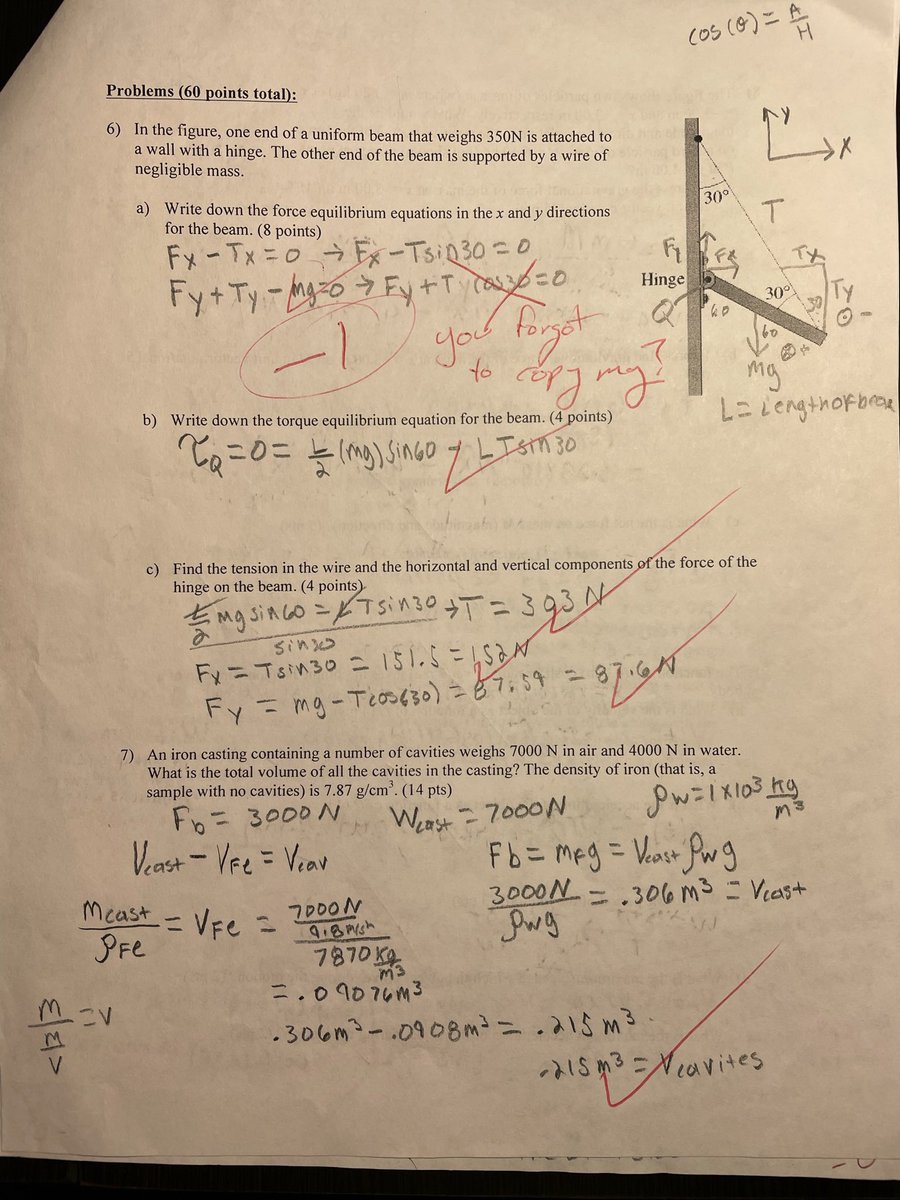 cos(θ) = A/H
Problems (60 points total):
6) In the figure, one end of a uniform beam that weighs 350N is attached to
a wall with a hinge. The other end of the beam is supported by a wire of
negligible mass.
a) Write down the force equilibrium equations in the x and y directions
for the beam. (8 points)
Fx - Tx = 0 → Fx - Tsin30 = 0
Fy + Ty - mg = 0 → Fy + T cos30 = 0
-1
you forgot
to copy mg?
y
x
30°
T
Fy
Fx
Tx
Hinge
30°
30
Ty
Q
60
60
⊙ -
⊗ +
mg
L = Length of beam
b) Write down the torque equilibrium equation for the beam. (4 points)
τQ = 0 = L/2 (mg) sin60 - LTsin30
c) Find the tension in the wire and the horizontal and vertical components of the force of the
hinge on the beam. (4 points)
L/2 mg sin60 = LTsin30 → T = 303 N
sin30
Fx = Tsin30 = 151.5 = 152N
Fy = mg - Tcos(30) = 87.59 = 87.6N
7) An iron casting containing a number of cavities weighs 7000 N in air and 4000 N in water.
What is the total volume of all the cavities in the casting? The density of iron (that is, a
sample with no cavities) is 7.87 g/cm³. (14 pts)
Fb = 3000N Wcast = 7000N ρw = 1x10³ kg/m³
Vcast - VFe = Vcav Fb = mFg = Vcast ρwg
3000N/ρwg = .306 m³ = Vcast
Mcast/ρFe = VFe = 7000N/9.8m/s²/7870 kg/m³
= .09076m³
M/(M/V) = V
.306m³ - .0908m³ = .215 m³
.215 m³ = Vcavites